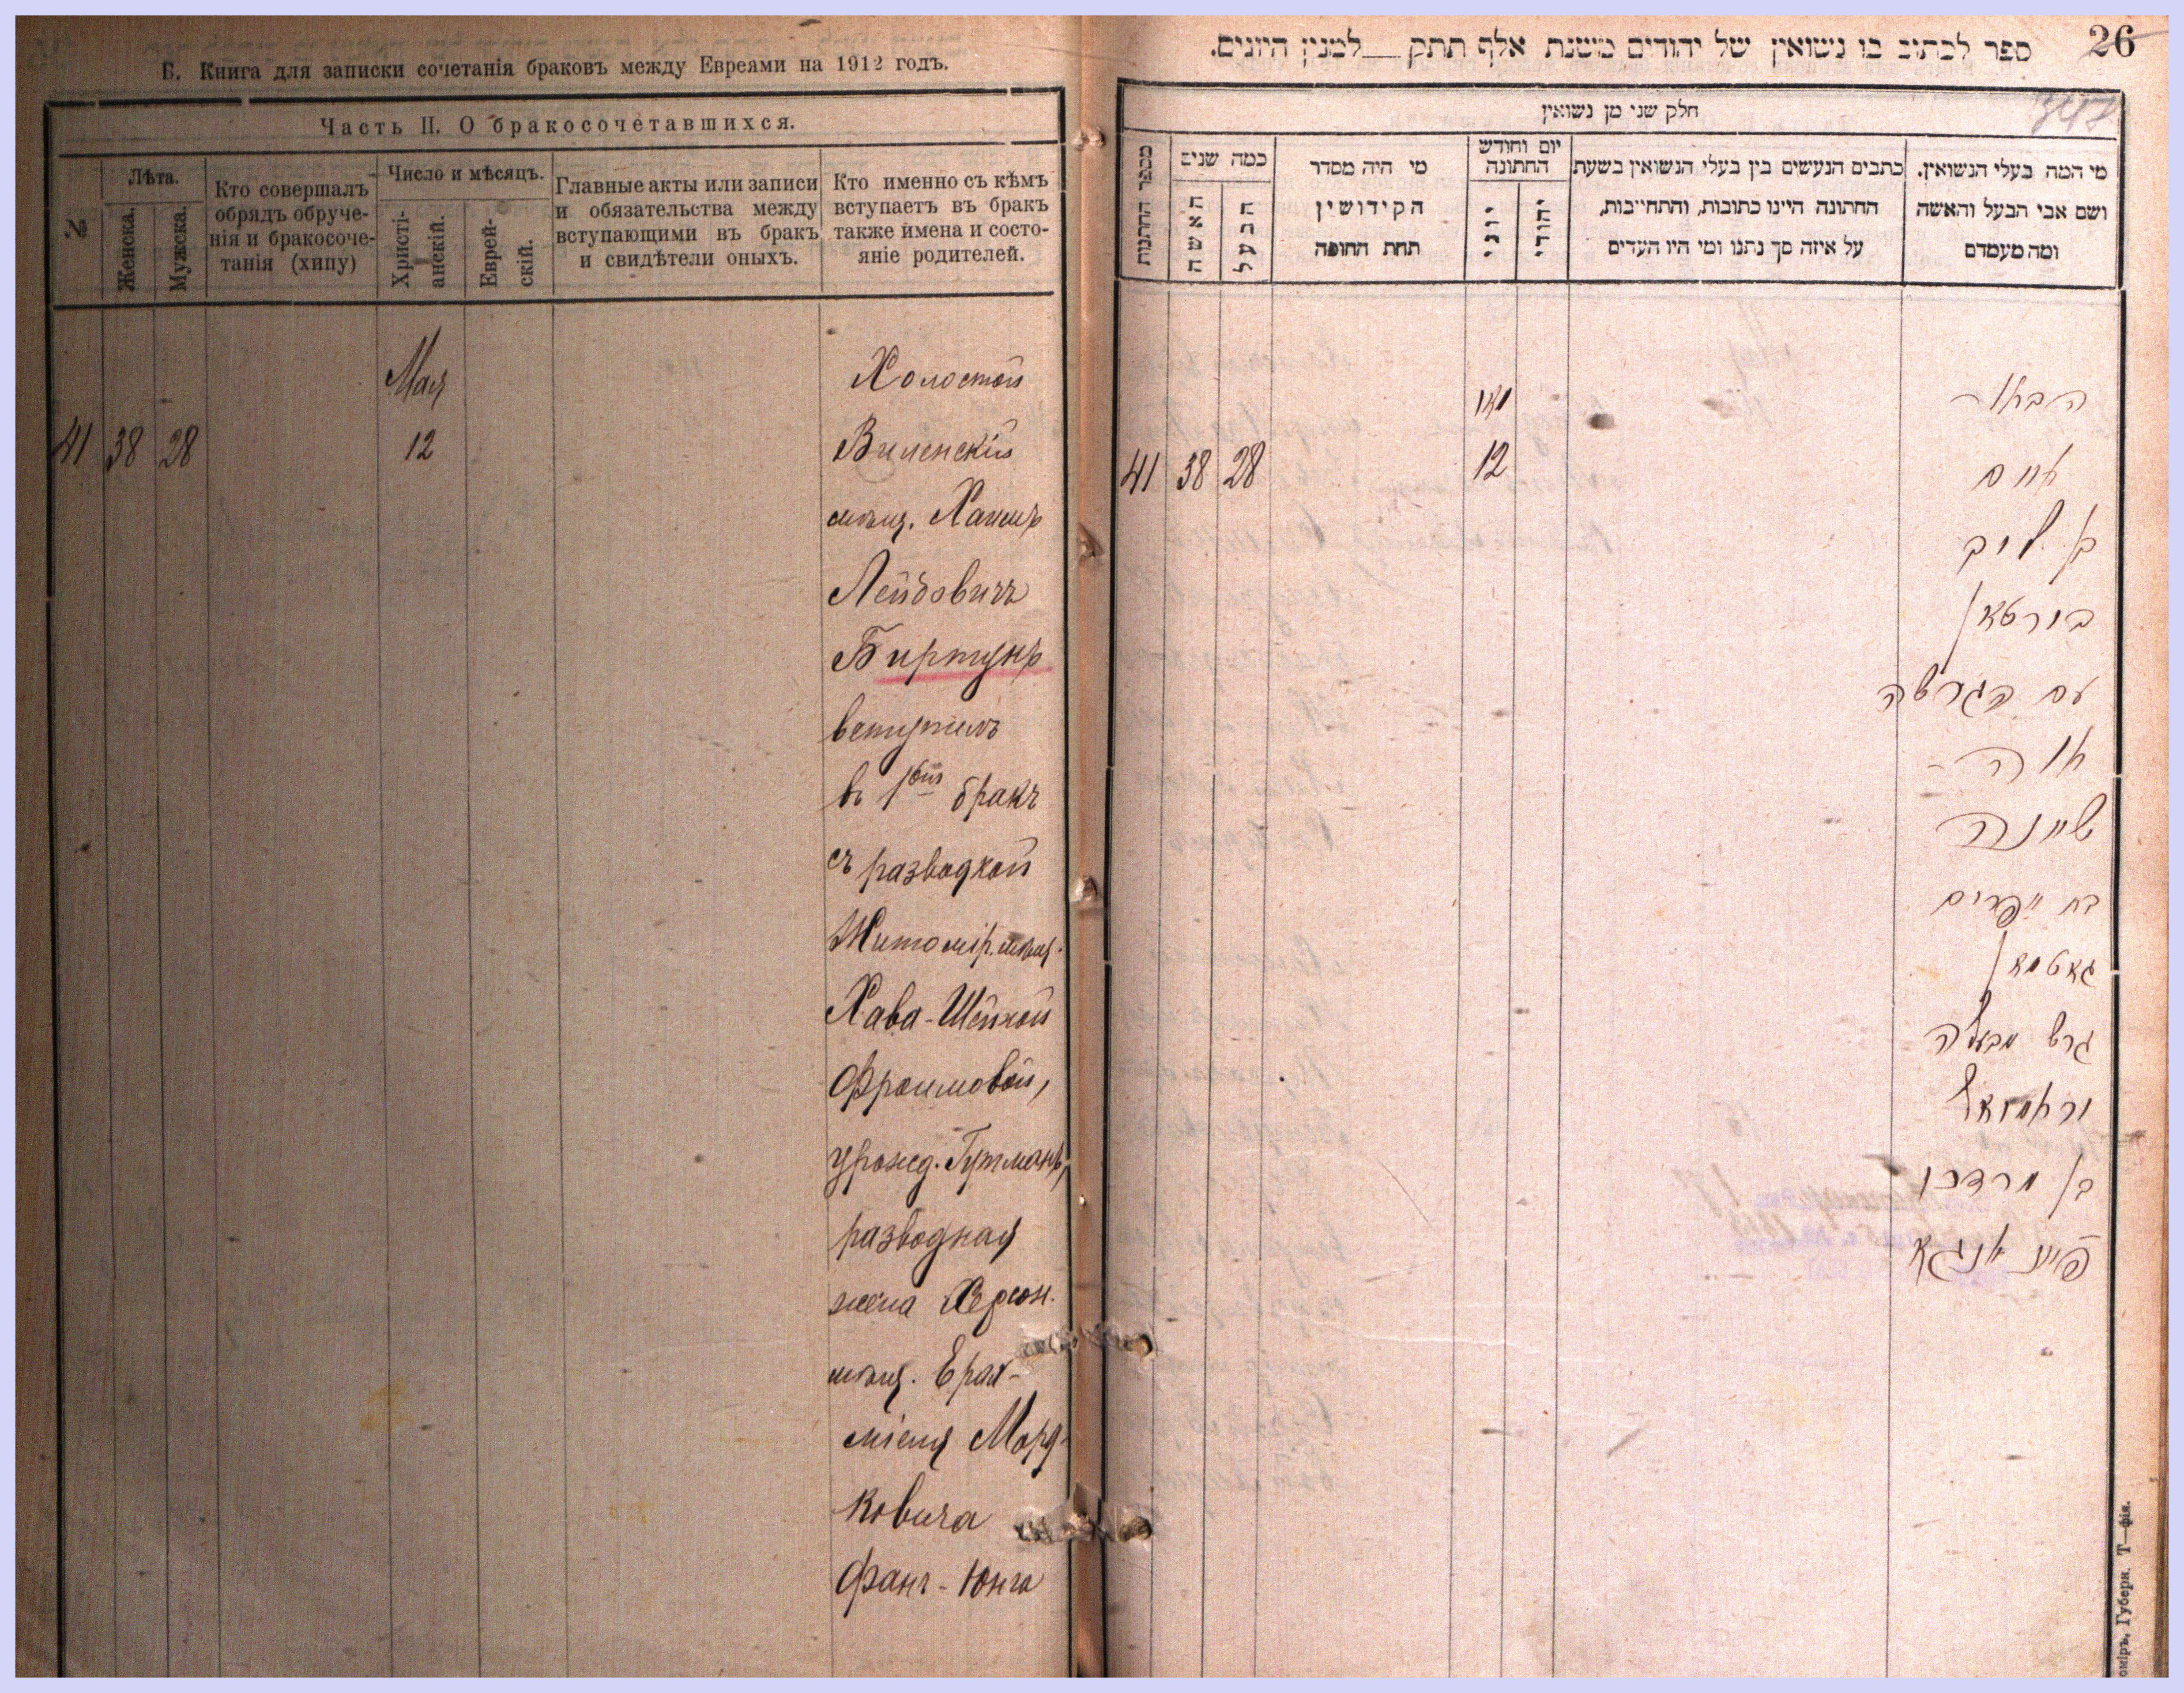 Б. Книга для записки сочетанія браковъ между Евреями на 1912 годъ.
Часть II. О бракосочетавшихся.
№
Лѣта.
Женска.
Мужска.
Кто совершалъ
обрядъ обруче-
нія и бракосоче-
танія (хипу)
Число и мѣсяцъ.
Христі-
анскій.
Еврей-
скій.
Главные акты или записи
и обязательства между
вступающими въ бракъ
и свидѣтели оныхъ.
Кто именно съ кѣмъ
вступаетъ въ бракъ
также имена и состо-
яніе родителей.
Мая
41 38 28 12
Холостой
Виленскій
мѣщ. Хаимъ
Лейбовичъ
Биртунъ
вступилъ
въ 1ый бракъ
съ разводкой
Житомір. мѣщ.
Хава-Шейной
Фроимовой,
урожд. Гутманъ,
разводная
жена Херсон.
мѣщ. Ерах-
міеля Морд-
ковича
Фанъ-Юнга
26
ספר לכתוב בו נשואין של יהודים משנת אלף תתק__למנין היונים.
חלק שני מן נשואין
מי המה בעלי הנשואין.
ושם אבי הבעל והאשה
ומה מעמדם
כתבים הנעשים בין בעלי הנשואין בשעת
החתונה היינו כתובות, והתחייבות,
על איזה סך נתנו ומי היו העדים
יום וחודש
החתונה
יהודי
יוני
מי היה מסדר
הקידושין
תחת החופה
כמה שנים
הבעל
האשה
מספר החתנות
מאי
41 38 28 12
הבחור
חיים
בן ליב
בורטאן
עם הגרושה
חוה -
שיינה
בת אפרים
גאטמאן
גרש מבעלה
ירחמיאל
בן מרדכי
פאן יונגא
оміръ, Губерн. Т—фія.